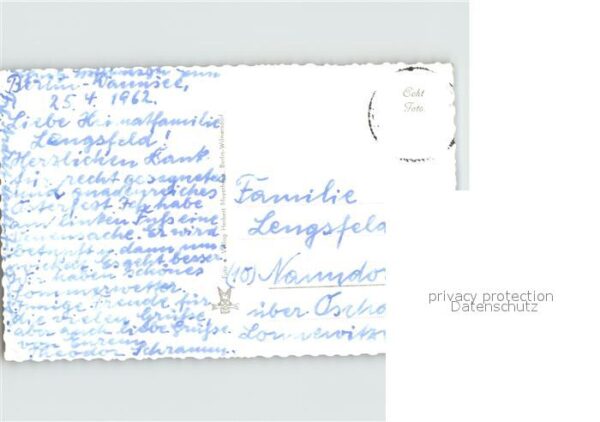 Berlin-Wannsee,
25.4.1962.
Liebe Heimatfamilie
Lengsfeld!
Herzlichen Dank
für recht gesegnetes
und gnadenreiches
Osterfest. Ich habe
am linken Fuß eine
Er wird
u. dann
Es geht besser
Wir haben schönes
Sommerwetter.
Freude für
die vielen Grüße
aber auch liebe Grüße
von Eurem
Theodor Schramm.
Echt
Foto
Familie
Lengsfeld
(10) Naundo
über Oscha
Lommewitz
privacy protection
Datenschutz